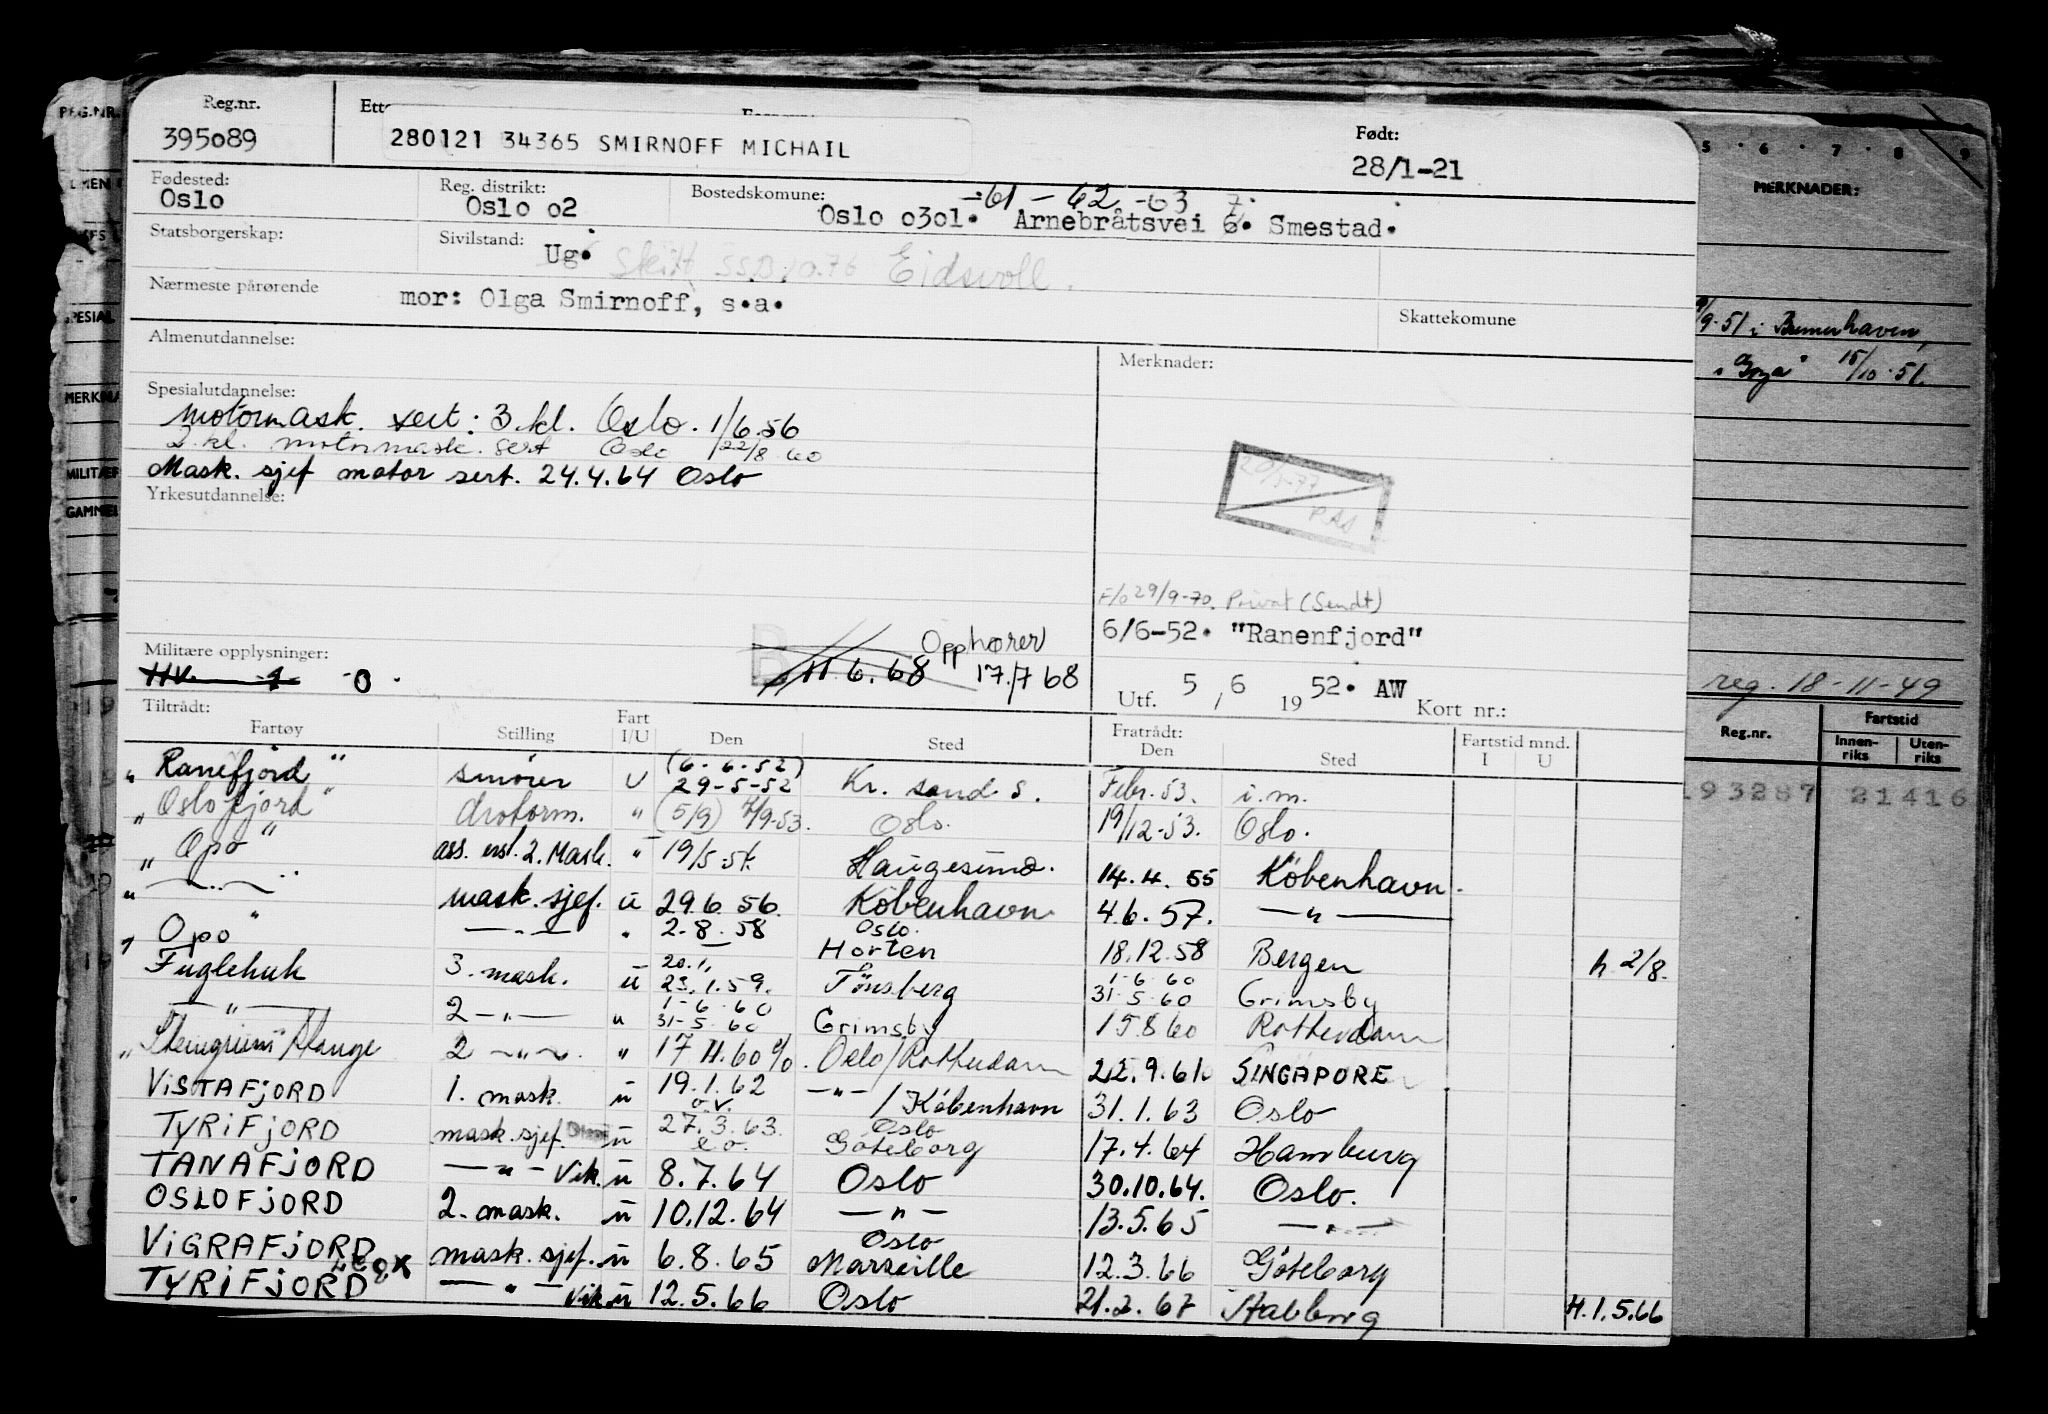 Reg.nr.
395089
280121 34365 SMIRNOFF MICHAIL
Født:
28/1-21
Fødested:
Oslo
Reg. distrikt:
Oslo o2
Bostedskomune:
-61 - 62 -63 7
Oslo o3ol. Arnebråtsvei 6. Smestad.
Statsborgerskap:
Sivilstand:
Ug. Skilt SSB 10.76 Eidsvoll.
Nærmeste pårørende
mor: Olga Smirnoff, s.a.
Skattekomune
Almenutdannelse:
Merknader:
Spesialutdannelse:
motormask. sert: 3.kl. Oslo. 1/6.56
2.kl. motormask. sert Oslo 22/8 60
Mask. sjef motor sert. 24.4.64 Oslo
Yrkesutdannelse:
F/o 29/9-70. Privat (Sendt)
6/6-52. "Ranenfjord"
Militære opplysninger:
HV 1 0.
B 11.6.68 Opphører
17.7.68
Utf. 5 / 6 19 52. AW Kort nr.:
Tiltrådt:
Fartøy Stilling Fart I/U Den Sted Fratrådt: Den Sted Fartstid mnd. I U
"Ranefjord" smører U (6-6-52) 29-5-52 Kr. sand S. Febr. 53. i.m.
"Oslofjord" drotorm. " (5/9) 4/9-53. Oslo. 19/12-53. Oslo.
"Opo" ass. erst. 2. Mask. " 19/5.54 Haugesund. 14.4.55 København.
" — " — " mask. sjef. u 29.6.56. København 4.6.57. — " —
"Opo" — " — " 2.8.58 Oslo. Horten 18.12.58 Bergen h 2/8.
Fuglehuk 3. mask. u 20.1. 23.1.59. Tønsberg 1-6-60 31-5-60 Grimsby
— " — 2 — " — u 1-6-60 31-5-60 Grimsby 15.8.60 Rotterdam
" Hauge 2 — " — " 17.11.60 Oslo/Rotterdam 22.9.61 SINGAPORE
VISTAFJORD 1. mask. u 19.1.62 — " — / København 31.1.63 Oslo
TYRIFJORD mask. sjef. u 27.3.63. Oslo Göteborg 17.4.64 Hamburg
TANAFJORD — " — Vik. u 8.7.64 Oslo 30.10.64. Oslo.
OSLOFJORD 2. mask. u 10.12.64 — " — 13.5.65 — " —
VIGRAFJORD mask. sjef. u 6.8.65 Oslo Marseille 12.3.66 Göteborg
TYRIFJORD — " — Vik. u 12.5.66 Oslo 21.2.67 H.1.5.66
REG.NR.
MERKNADER:
5 · 6 · 7 · 8 · 9
/9-51 i Bremerhaven,
15/10-51.
reg. 18-11-49
Reg.nr.
Fartstid
Innen-riks Uten-riks
193287 21416
SPESIAL
MILITÆR
GAMMEL